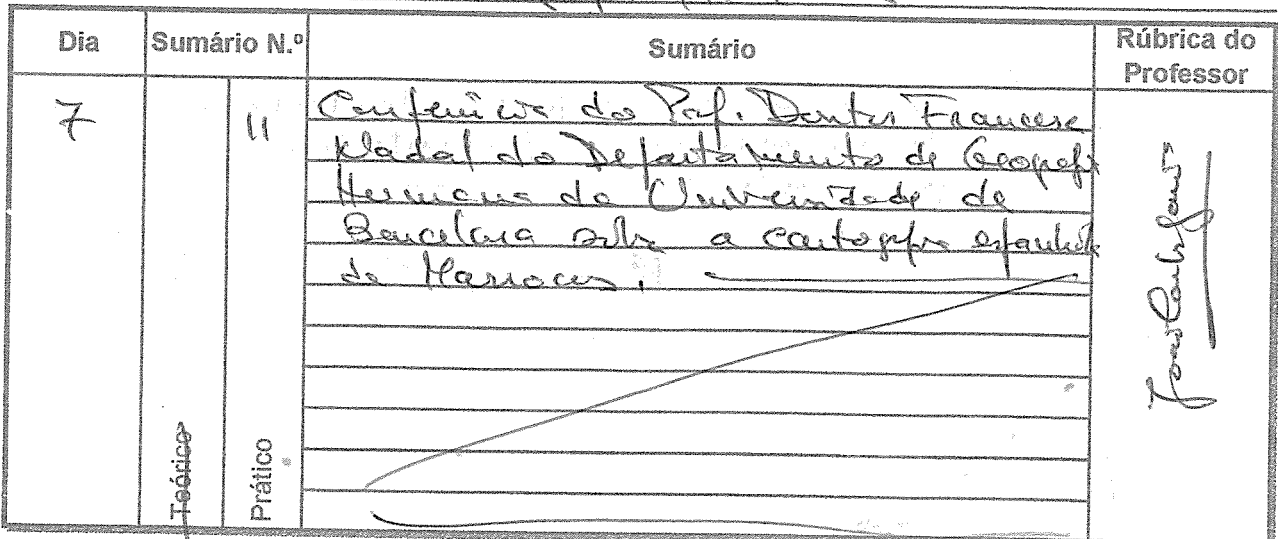 Dia Sumário N.º Sumário Rúbrica do Professor
7 11 Conferência do Prof. Doutor Francesc
Nadal do Departamento de Geografia
Humana da Universidade de
Barcelona sobre a cartografia espanhola
de Marrocos.
Teórico
Prático